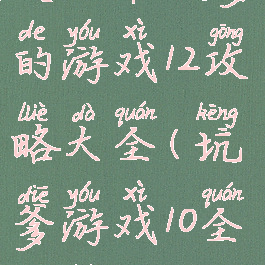 de yóu xì gōng
的游戏12攻
lüè dà quán kēng
略大全(坑
diē yóu xì quán
爹游戏10全